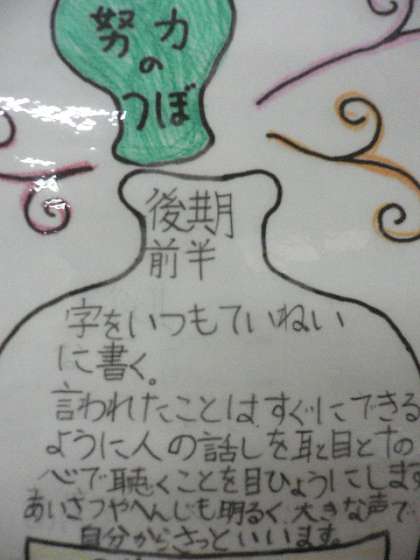 努力
の
つぼ
後期
前半
字をいつもていねい
に書く。
言われたことはすぐにできる
ように人の話しを耳と目と十の
心で聴くことを目ひょうにします
あいさつやへんじも明るく大きな声で
自分からさっといいます。